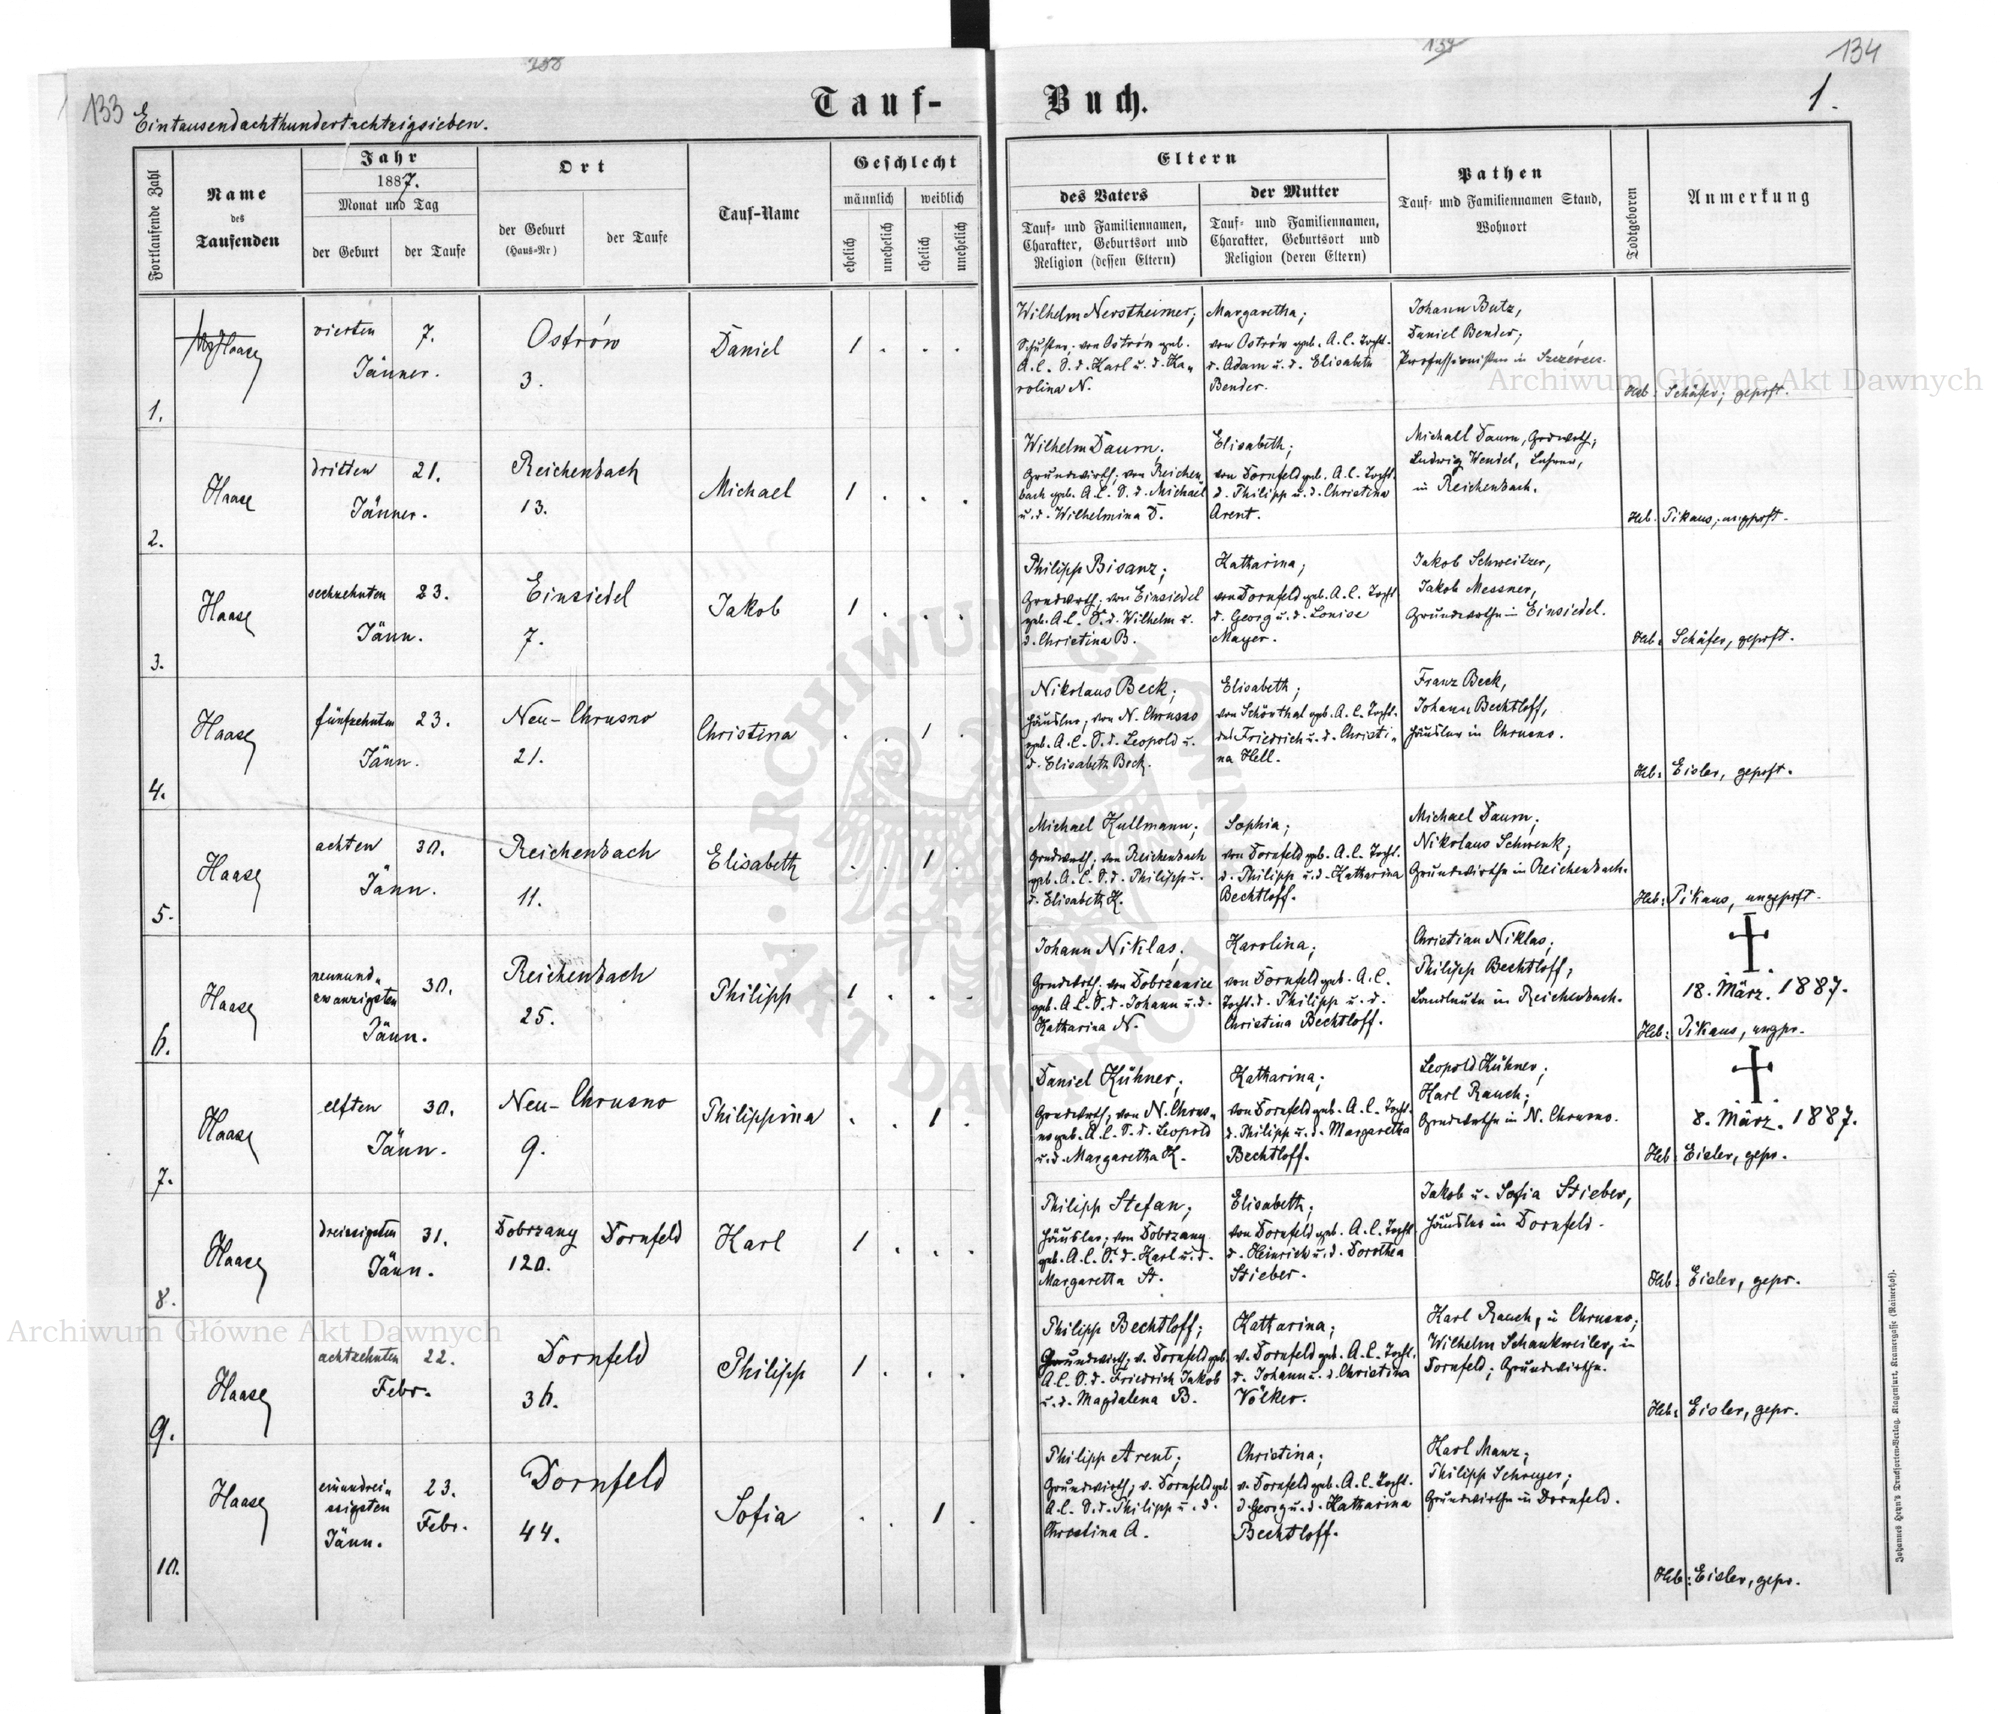 133
138
Eintausendachthundertachtzigsieben.
Tauf-
Buch.
138
134
1.
Fortlaufende Zahl
Name
des
Taufenden
Jahr
1887.
Monat und Tag
der Geburt
der Taufe
Ort
der Geburt
(Haus-Nr)
der Taufe
Tauf-Name
Geschlecht
männlich
weiblich
ehelich
unehelich
ehelich
unehelich
Eltern
des Vaters
Tauf- und Familiennamen,
Charakter, Geburtsort und
Religion (dessen Eltern)
der Mutter
Tauf- und Familiennamen,
Charakter, Geburtsort und
Religion (deren Eltern)
Pathen
Tauf- und Familiennamen Stand,
Wohnort
Todtgeboren
Anmerkung
1.
Haase
vierten
Jänner.
7.
Ostrów
3.
Daniel
1 . . .
Wilhelm Nerstheimer;
Schuster; von Ostrów geb.
A.C. S.d. Karl u. d. Ka-
rolina N.
Margaretha;
von Ostrów geb. A.C. Tocht.
d. Adam u. d. Elisabeth
Bender.
Johann Butz,
Daniel Bender;
Professionisten in Szczerzec.
Heb: Schäfer; geprft.
2.
Haase
dritten
Jänner.
21.
Reichenbach
13.
Michael
1 . . .
Wilhelm Daum,
Grundwirth; von Reichen
bach geb. A.C. S.d. Michael
u.d. Wilhelmina D.
Elisabeth;
von Dornfeld geb. A.C. Tocht.
d. Philipp u. d. Christina
Arent.
Michael Daum, Grdwrth;
Ludwig Wendel, Lehrer,
in Reichenbach.
Heb. Pikaus, ungeprft.
3.
Haase
sechzehnten
Jänn.
23.
Einsiedel
7.
Jakob
1 . . .
Philipp Bisanz;
Grndwrth; von Einsiedel
geb. A.C. S.d. Wilhelm u.
d. Christina B.
Katharina;
von Dornfeld geb. A.C. Tocht
d. Georg u. d. Louise
Mayer.
Jakob Schweitzer,
Jakob Messner,
Grundwirthe in Einsiedel.
Heb: Schäfer, geprft.
4.
Haase
fünfzehnten
Jänn.
23.
Neu-Chrusno
21.
Christina
. . 1 .
Nikolaus Beck;
Häusler; von N. Chrusno
geb. A.C. S.d. Leopold u.
d. Elisabeth Beck.
Elisabeth;
von Schönthal geb. A.C. Tocht.
des Friedrich u. d. Christi-
na Hell.
Franz Beck,
Johann Bechtloff,
Häusler in Chrusno.
Heb: Eisler, geprft.
5.
Haase
achten
Jänn.
30.
Reichenbach
11.
Elisabeth
. . 1 .
Michael Kullmann;
Grndwrth; von Reichenbach
geb. A.C. S.d. Philipp u.
d. Elisabeth K.
Sophia;
von Dornfeld geb. A.C. Tocht.
d. Philipp u. d. Katharina
Bechtloff.
Michael Daum;
Nikolaus Schwenk;
Grundwirthe in Reichenbach.
Heb: Pikaus, ungeprft.
6.
Haase
neunund-
zwanzigsten
Jänn.
30.
Reichenbach
25.
Philipp
1 . . .
Johann Niklas;
Grndwrth; von Dobrzanice
geb. A.C. S.d. Johann u.d.
Katharina N.
Karolina;
von Dornfeld geb. A.C.
Tocht. d. Philipp u. d.
Christina Bechtloff.
Christian Niklas;
Philipp Bechtloff;
Landleute in Reichenbach.
18. März. 1887.
Heb: Pikaus, ungpr.
7.
Haase
elften
Jänn.
30.
Neu-Chrusno
9.
Philippina
. . 1 .
Daniel Kühner;
Grndwrth; von N. Chrus-
no geb. A.C. S.d. Leopold
u.d. Margaretha K.
Katharina;
von Dornfeld geb. A.C. Tocht.
d. Philipp u. d. Margaretha
Bechtloff.
Leopold Kühner;
Karl Rauch;
Grndwrthe in N. Chrusno.
8. März. 1887.
Heb: Eisler, gepr.
8.
Haase
dreissigsten
Jänn.
31.
Dobrzany
120.
Dornfeld
Karl
1 . . .
Philipp Stefan;
Häusler; von Dobrzany
geb. A.C. S.d. Karl u.d.
Margaretta St.
Elisabeth;
von Dornfeld geb. A.C. Tocht
d. Heinrich u. d. Dorothea
Stieber.
Jakob u. Sofia Stieber,
Häusler in Dornfeld.
Heb: Eisler, gepr.
9.
Haase
achtzehnten
Febr.
22.
Dornfeld
36.
Philipp
1 . . .
Philipp Bechtloff;
Grundwirth; v. Dornfeld geb.
A.C. S.d. Friedrich Jakob
u.d. Magdalena B.
Katharina;
v. Dornfeld geb. A.C. Tocht.
d. Johann u. d. Christina
Völker.
Karl Rauch, in Chrusno;
Wilhelm Schankweiler, in
Dornfeld; Grundwirthe.
Heb: Eisler, gepr.
10.
Haase
einundrei-
ssigsten
Jänn.
23.
Febr.
Dornfeld
44.
Sofia
. . 1 .
Philipp Arent;
Grundwirth; v. Dornfeld geb
A.C. S.d. Philipp u. d.
Christina A.
Christina;
v. Dornfeld geb. A.C. Tocht.
d. Georg u. d. Katharina
Bechtloff.
Karl Manz;
Philipp Schreyer;
Grundwirthe in Dornfeld.
Heb: Eisler, gepr.
Johannes Heyn's Drucksorten-Verlag, Klagenfurt, Kramergasse (Rainerhof).
Archiwum Główne Akt Dawnych
Archiwum Główne Akt Dawnych
ARCHIWUM
AKT DAWNYCH